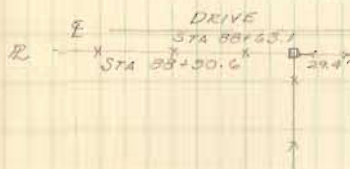 DRIVE
℄
STA 88+63.1
℞
STA 88+90.6
29.4'